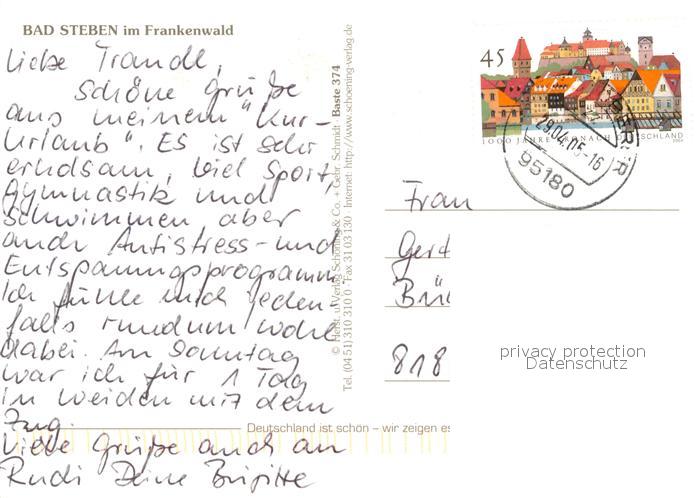 BAD STEBEN im Frankenwald
Liebe Traudl,
Schöne Grüße
aus meinem "Kur-
Urlaub". Es ist sehr
erholsam, viel Sport,
Gymnastik und
Schwimmen aber
auch Antistress- und
Entspannungsprogramm.
Ich fühle mich jeden-
falls rundum wohl
dabei. Am Sonntag
war ich für 1 Tag
in Weiden mit dem
Zug.
Viele Grüße auch an
Rudi Deine Brigitte
© Herst. u. Verlag Schöning & Co. + Gebr. Schmidt Baste 374
Tel. (04 51) 310 310 0 Fax 31 03 130 · Internet: http://www.schoening-verlag.de
Deutschland ist schön – wir zeigen es
45
1000 JAHRE KRONACH DEUTSCHLAND
29.04.05-16
95180
Frau
Gert
Brü
818
privacy protection
Datenschutz